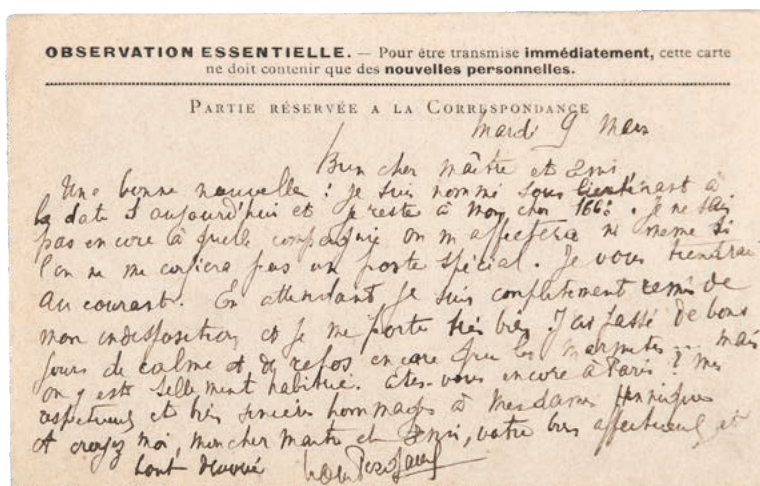 OBSERVATION ESSENTIELLE. — Pour être transmise immédiatement, cette carte
ne doit contenir que des nouvelles personnelles.
PARTIE RÉSERVÉE A LA CORRESPONDANCE
Mardi 9 Mars
Bien cher maître et ami,
Une bonne nouvelle : je suis nommé sous lieutenant à
la date d'aujourd'hui et je reste à mon cher 166e. Je ne sais
pas encore à quelle compagnie on m'affectera ni même si
l'on ne me confiera pas un poste spécial. Je vous tiendrai
au courant. En attendant je suis complètement remis de
mon indisposition et je me porte très bien. J'ai passé de bons
jours de calme et de repos encore que les marmites... mais
on y est tellement habitué. Etes-vous encore à Paris ? Mes
respectueux et très sincères hommages à Mesdames Henriques
et croyez moi, mon cher maître et ami, votre bien affectueux et
tout dévoué